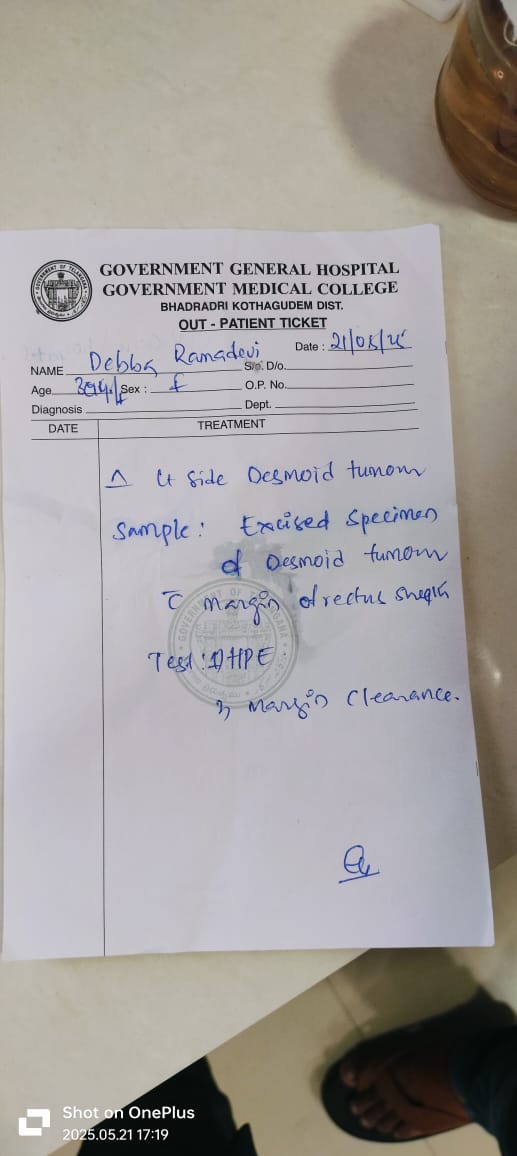 GOVERNMENT GENERAL HOSPITAL
GOVERNMENT MEDICAL COLLEGE
BHADRADRI KOTHAGUDEM DIST.
OUT - PATIENT TICKET
Date : 21/05/25
NAME Debba Ramadevi S/o. D/o.
Age Sex : f O.P. No.
Diagnosis Dept.
DATE TREATMENT
△ Lt Side Desmoid tumour
Sample : Excised Specimen
of Desmoid tumour
c̄ Margin of rectus sheath
Test : 1) HPE
2) Margin Clearance.
Shot on OnePlus
2025.05.21 17:19